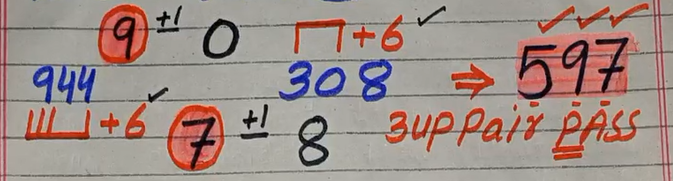 9 ±1 0 +6 ✓ ✓✓✓
944 308 ⇒ 597
+6 ✓ 7 ±1 8 3up Pair PAss